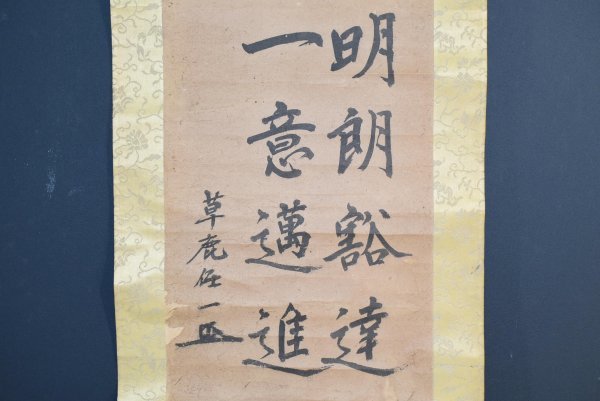 明朗豁達
一意邁進
草鹿任一